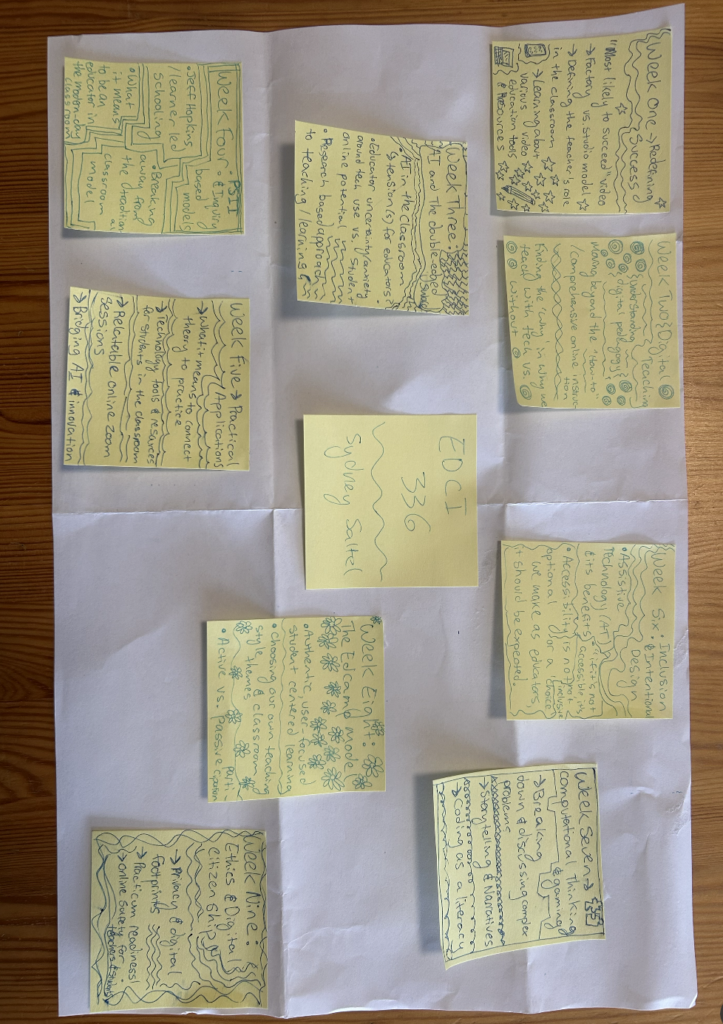 Week One → Redefining
Success
"Most likely to succeed" video
→ Factory vs studio model
→ Defining the teacher's role
in the classroom
→ Learning about
various video
Education tools
& Resources
Week Two: Digital
Teaching
Understanding
digital pedagogy!
Moving beyond the "how-to"
/comprehensive online instruc-
tion
Finding the 'why' in why we
teach with tech vs.
without
Week Three:
AI and The double edged
AI in the classroom
→ tension(s) for educators
• Educator uncertainty/anxiety
around tech use vs. student
online potential
• Research based approach
to teaching/learning
Week Four: PSII
• Inquiry
based
models
• Jeff Hopkins
/learner led
schooling
• Breaking
away from
the traditional
classroom
model
• What
it means
to be an
educator in
the modern-day
classroom
Week Five → Practical
Applications
→ What it means to connect
theory to practice
→ Technology tools & resources
for students in the classroom
→ Relatable online zoom
sessions
→ Bridging AI & innovation
EDCI
336
Sydney Saltel
Week Six: Inclusion
& Intentional
Design
• Assistive
Technology (AT)
& its benefits
• Accessibility is not
optional /or a choice
we make as educators,
it should be expected.
Week Seven →
computational thinking
& gaming
→ Breaking
down & discussing complex
problems
→ Storytelling & Narratives
→ Coding as a literacy
Week Eight:
The Edcamp Model
• Authentic, user-focused
student centered learning
• Choosing our own teaching
style, themes & classroom
• Active vs. Passive
parti-
cipation
Week Nine:
Ethics & Digital
Citizenship
→ Privacy & digital
footprints
→ Practicum readiness!
→ Online Safety for
teachers & students